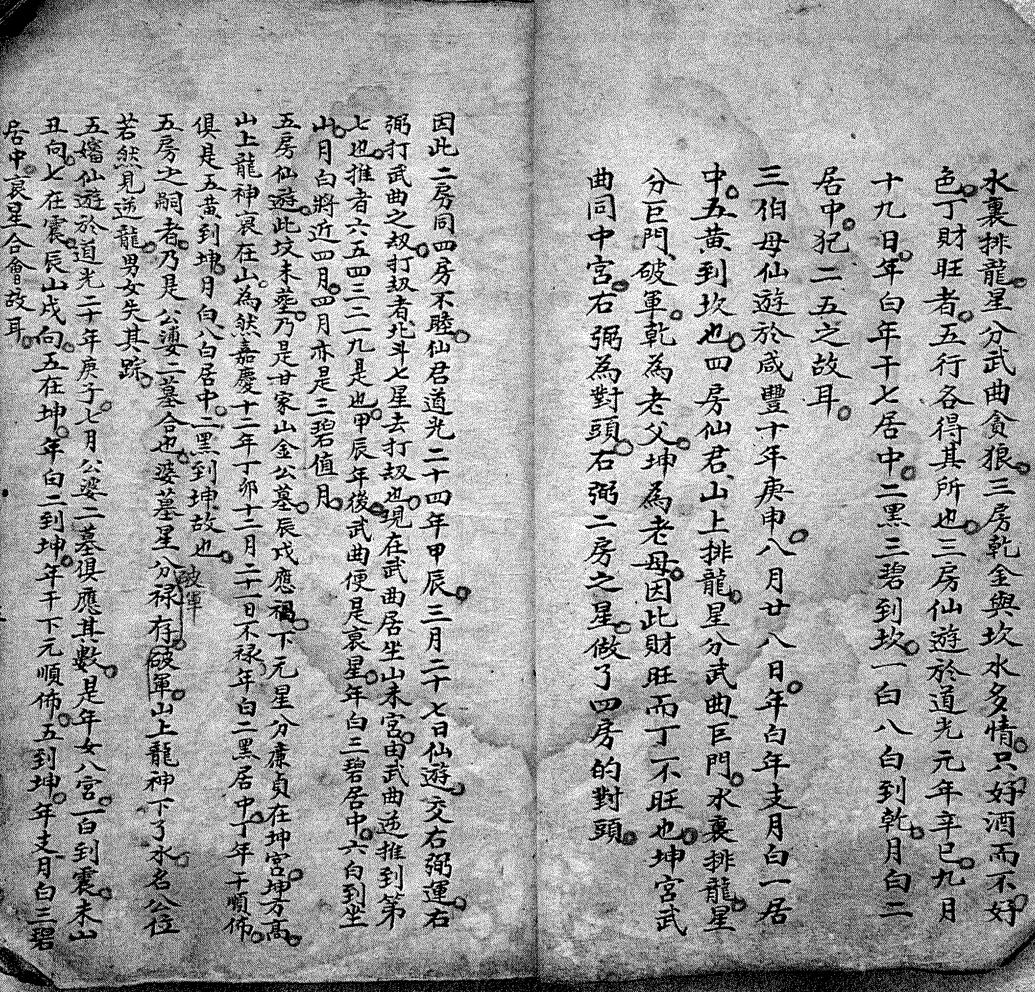 水裏排龍星分武曲貪狼三房乾金與坎水多情只好酒而不好
色丁財旺者五行各得其所也三房仙遊於道光元年辛巳九月
十九日年白年干七居中二黑三碧到坎一白八白到乾月白二
居中犯二五之故耳
三伯母仙遊於咸豐十年庚申八月廿八日年白年支月白一居
中五黄到坎也四房仙君山上排龍星分武曲巨門水裏排龍星
分巨門破軍乾為老父坤為老母因此財旺而丁不旺也坤宮武
曲同中宮右弼為對頭右弼二房之星做了四房的對頭
因此二房同四房不睦仙君道光二十四年甲辰三月二十七日仙遊交右弼運右
弼打武曲之刼打刼者北斗七星去打刼也現在武曲居坐山未宮由武曲逆推到第
七也推者六五四三二一九是也甲辰年後武曲便是衰星年白三碧居中六白到坐
山月白將近四月四月亦是三碧值月
五房仙遊此坟未塟乃是甘家山金公墓辰戌應禍下元星分廉貞在坤宮坤方高
山上龍神衰在山為然嘉慶十二年丁卯十二月二十一日不禄年白二黑居中丁年干順佈
俱是五黄到坤月白八白居中二黑到坤故也
五房之嗣者乃是公婆二墓合也婆墓星分禄存破軍山上龍神下了水名公位
破軍
若然見逆龍男女失其踪
五嬸仙遊於道光二十年庚子七月公婆二墓俱應其數是年女八宮一白到震未山
丑向七在震辰山戌向五在坤年白二到坤年干下元順佈五到坤年支月白三碧
居中衰星合會故耳